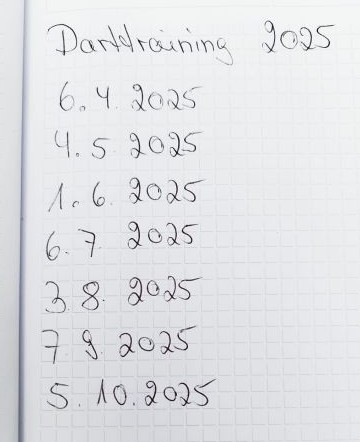 Darttraining 2025
6. 4. 2025
4. 5 2025
1. 6. 2025
6. 7. 2025
3. 8. 2025
7 9. 2025
5. 10. 2025